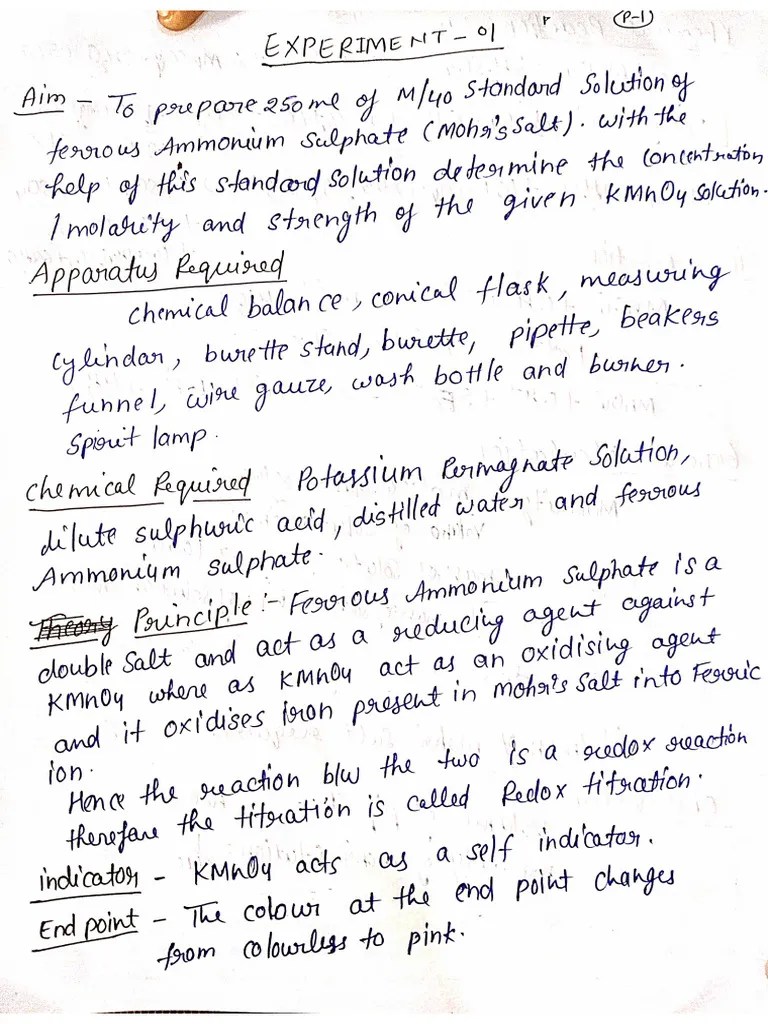 P-1
EXPERIMENT - 01
Aim - To prepare 250ml of M/40 Standard Solution of
ferrous Ammonium Sulphate (Mohr's Salt). with the
help of this standard solution determine the concentration
/molarity and strength of the given KMnO4 solution.
Apparatus Required
chemical balance, conical flask, measuring
cylindar, burette stand, burette, pipette, beakers
funnel, wire gauze, wash bottle and burner.
Spirit lamp.
Chemical Required Potassium Permagnate Solution,
dilute sulphuric acid, distilled water and ferrous
Ammonium sulphate.
Theory Principle :- Ferrous Ammonium Sulphate is a
double Salt and act as a reducing agent against
KMnO4 where as KMnO4 act as an oxidising agent
and it oxidises iron present in mohr's Salt into Ferric
ion.
Hence the reaction b/w the two is a redox reaction
therefore the titration is called Redox titration.
indicator - KMnO4 acts as a self indicator.
End point - The colour at the end point changes
from colourless to pink.